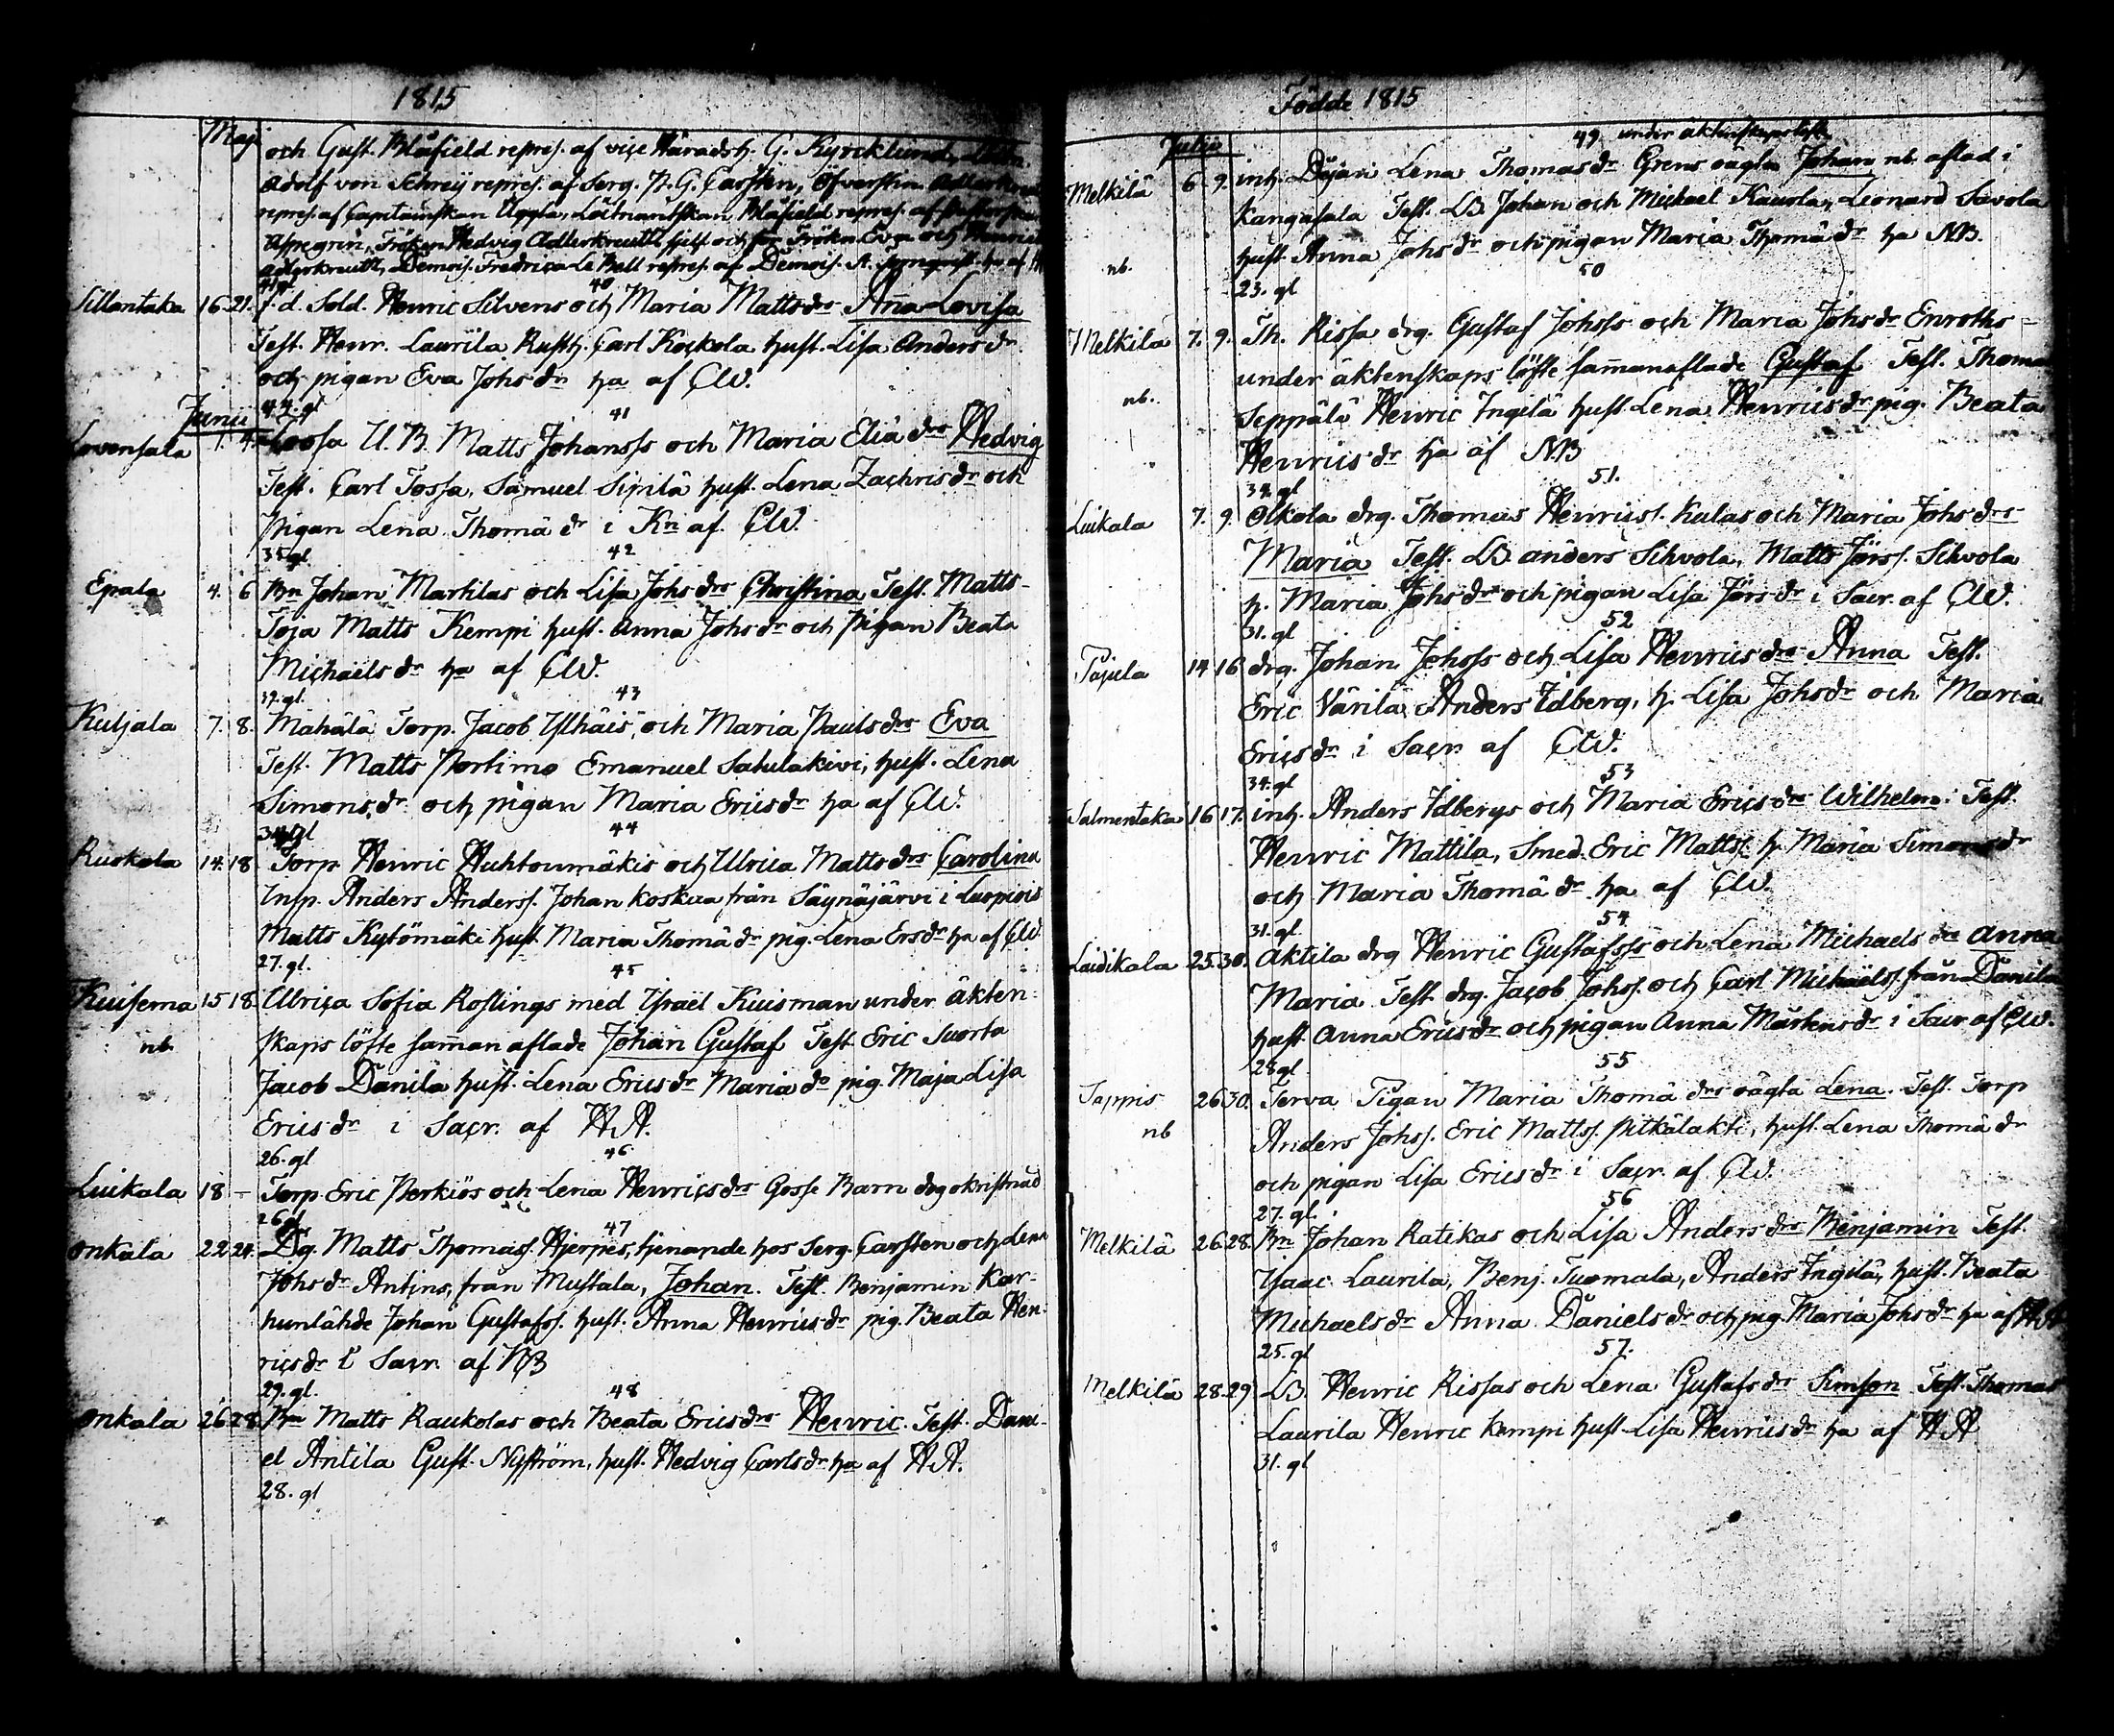 1815
Maji
och Gust. Blåfield repres. af vice Häradsh. G. Kyrcklund,
Adolf von Schreij repres. af Serg. P. G. Carsten, Öfverstin.
repres. af Capitainskan Uggla, Löitnantskan Blåfield repres. af
Fröken Hedvig Adlerkreutz sjelf och för Frökn. Eva och
Adlerkreutz, Demois. Fredrica Le Bell repres. af Demois. A.
41 gl. 40
Sillantaka 16. 21. f. d. Sold. Henric Silvens och Maria Matts drs Anna Lovisa
Test. Henr. Laurila Rusth. Carl Kockola hust. Lisa Anders dr
och pigan Eva Johs dr ha af CW.
Junii 44. gl 41
Lovensala 1. 4. U. B. Matts Johanss och Maria Eliä drs Hedvig
Test. Carl Tossa, Samuel Sipilä hust. Lena Zachris dr och
Pigan Lena Thomä dr i Kn af CW.
35 gl 42
Epala 4. 6 Bn Johan Marttilas och Lisa Johs drs Christina Test. Matts
Toja Matts Kempi hust. Anna Johs dr och Pigan Beata
Michaels dr ha af CW.
32. gl. 43
Kuljala 7. 8. Mahälä Torp. Jacob Ylhäis, och Maria Pauls drs Eva
Test. Matts Portimo Emanuel Satulakivi, hust. Lena
Simons dr och pigan Maria Erics dr ha af CW.
34 gl 44
Ruokola 14. 18 Torp. Henric Huhtoumäkis och Ulrica Matts drs Carolina
Insp. Anders Anderss. Johan Koskua från Säynäjärvi i Luopiois
Matts Kytömäki hust. Maria Thomä dr pig. Lena Ers dr ha af CW
27. gl. 45
Kuisema 15 18. Ulrica Sofia Roslings med Israël Kuisman under äkten-
nb. skaps löfte samman aflade Johan Gustaf Test. Eric Suorta
Jacob Danila hust. Lena Erics dr Maria do pig. Maja Lisa
Erics dr i Sacr. af HA.
26. gl 46
Luikala 18 – Torp. Eric Perkiös och Lena Henrics drs Gosse Barn dog okristnad
26 gl 47
Onkala 22 24. Dg. Matts Thomass. Hjerpes, tjenande hos Serg. Carsten och Lena
Johs dr Antins, från Mustala, Johan. Test. Benjamin Kar-
hunlähde Johan Gustafss. hust. Anna Henrics dr pig. Beata Hen-
rics dr i Sacr. af NB
29. gl. 48
Onkala 26 28. Bn Matts Raukolas och Beata Erics drs Henric. Test. Dani-
el Antila Gust. Nyström, hust. Hedvig Carls dr ha af HA.
28. gl
Födde 1815
Julii 49 under äktenskapslöfte
Melkilä 6 9. inh. Däjari Lena Thomas dr Grens oägta Johan nb. aflad i
Kangasala Test. LB. Johan och Michael Kaurola, Leonard Savola
hust. Anna Johs dr och pigan Maria Thomä dr ha NB.
nb. 50
23. gl
Melkilä 7. 9. Th. Rissa drg. Gustaf Johss och Maria Johs dr Enroths
under äktenskaps löfte sammanaflade Gustaf Test. Thomas
nb. Seppälä Henric Ingilä hust. Lena Henrics dr pig. Beata
Henrics dr ha af NB
34. gl 51.
Luikala 7. 9. Olkola drg. Thomas Henricss. Kulas och Maria Johs drs
Maria Test. LB. Anders Sihvola, Matts Jörss. Sihvola
h. Maria Johs dr och pigan Lisa Jörs dr i Sacr. af CW.
31. gl 52
Pajula 14 16 drg. Johan Johss och Lisa Henrics drs Anna Test.
Eric Värilä Anders Idberg, h. Lisa Johs dr och Maria
Erics dr i Sacr. af CW.
34. gl 53
Salmentaka 16 17. inh. Anders Idbergs och Maria Erics drs Wilhelm. Test.
Henric Mattila, Smed. Eric Mattss. h. Maria Simons dr
och Maria Thomä dr ha af CW.
31. gl 54
Laidikala 25. 30. Aktila drg Henric Gustafss och Lena Michaels drs Anna
Maria Test. drg. Jacob Johss. och Carl Michaëlss. från Danila
hust. Anna Erics dr och pigan Anna Mårtens dr i Sacr. af CW.
28 gl 55
Tappis 26 30. Terva Pigan Maria Thomä drs oägta Lena. Test. Torp
nb Anders Johss. Eric Mattss. Pitkälakti, hust. Lena Thomä dr
och pigan Lisa Erics dr i Sacr. af CW.
27. gl. 56
Melkilä 26 28. Bn Johan Ratikas och Lisa Anders drs Benjamin Test.
Isaac Laurila, Benj. Tuomala, Anders Ingilä, hust. Beata
Michaels dr Anna Daniels dr och pig. Maria Johs dr ha af HA
25. gl 57.
Melkilä 28. 29 LB. Henric Rissas och Lena Gustafs drs Simson Test. Thomas
Laurila Henric Kempi hust. Lisa Henrics dr ha af HA
31. gl